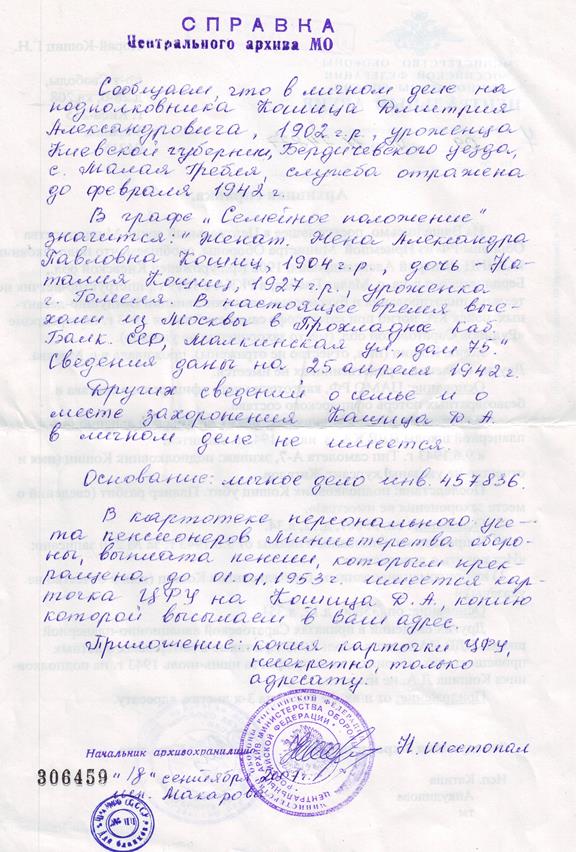 СПРАВКА
Центрального архива МО
Сообщаем, что в личном деле на
подполковника Кошица Дмитрия
Александровича, 1902 г.р., уроженца
Киевской губернии, Бердичевского уезда,
с. Малая Гребля, служба отражена
до февраля 1942 г.
В графе „Семейное положение"
значится: "Женат. Жена Александра
Павловна Кошиц, 1904 г.р., дочь - На-
талия Кошиц, 1927 г.р., уроженка
г. Гомеля. В настоящее время вые-
хали из Москвы в Прохладна Каб.
Балк. ССР, Малкинская ул., дом 75."
Сведения даны на „25 апреля 1942 г.
Других сведений о семье и о
месте захоронения Кошица Д.А.
в личном деле не имеется
Основание: личное дело инв. 457836.
В картотеке персонального уче-
та пенсионеров Министерства оборо-
ны, выплата пенсии, которым прек
ращена до 01.01.1953 г. имеется кар-
точка ЦФУ на Кошица Д.А., копию
которой высылаем в Ваш адрес.
Приложение: копия карточки ЦФУ,
несекретно, только
адресату.
Начальник архивохранилища
Н. Шестопал
306459 "18" сентября 2001 г.
исп. Макарова